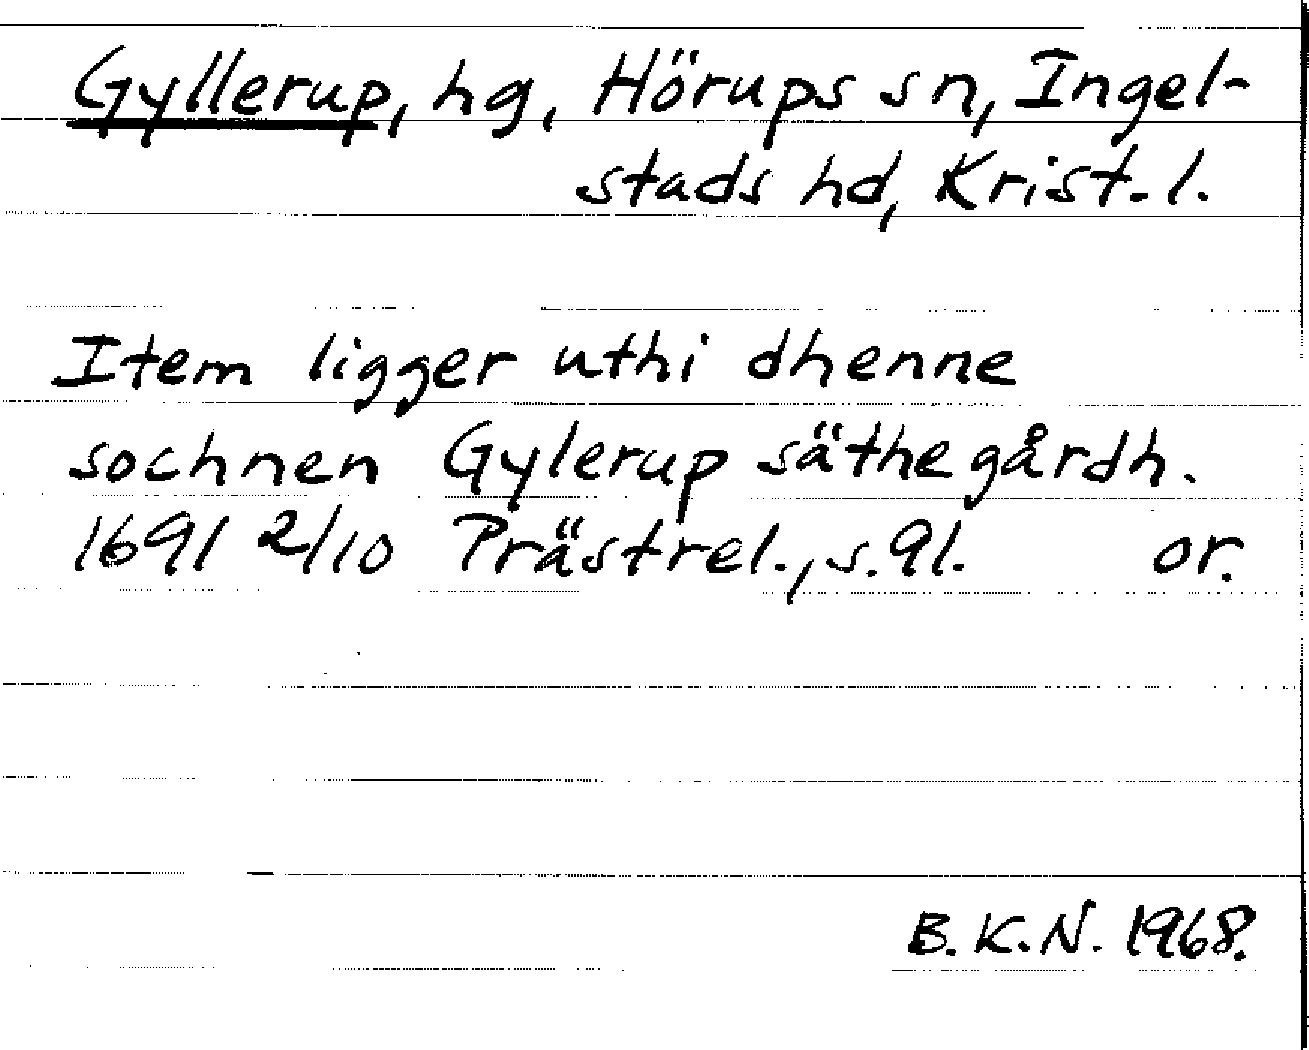 Gyllerup, hg, Hörups sn, Ingel-
stads hd, Krist. l.
Item ligger uthi dhenne
sochnen Gylerup säthegårdh.
1691 2/10 Prästrel., s. 91. or.
B. K. N. 1968.